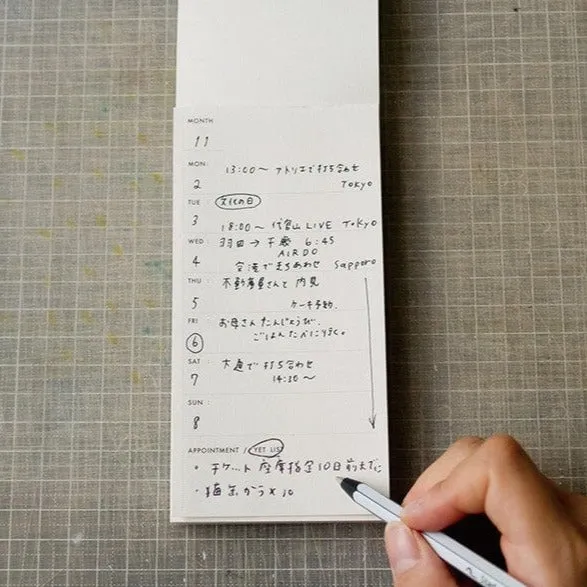 MONTH
11
MON:
2
13:00〜 アトリエで打ち合わせ
TOKYO
TUE
3
文化の日
18:00〜 LIVE TOKYO
WED
4
羽田→千歳 6:45
AIRDO
空港でまちあわせ Sapporo
THU:
5
不動産屋さんと内見
ケーキ予約.
FRI
6
お母さんたんじょうび.
ごはんたべに行く。
SAT:
7
大通で打ち合わせ
14:30〜
SUN:
8
APPOINTMENT / YET LIST
・チケット 座席指定10日前までに
・猫缶かう×10